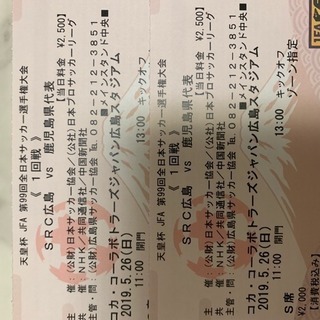 天皇杯 JFA 第99回全日本サッカー選手権大会
《 1回戦 》
SRC広島 vs 鹿児島県代表
【当日料金 ¥2,500】
主 催：(公財)日本サッカー協会／(公社)日本プロサッカーリーグ
共 催：NHK／共同通信社／中国新聞社
主管・問：(公財)広島県サッカー協会 ℡082-212-3851
■メインスタンド中央■
コカ・コーラボトラーズジャパン広島スタジアム
2019.5.26(日)
11:00 開門 13:00 キックオフ
天皇杯 JFA 第99回全日本サッカー選手権大会
《 1回戦 》
SRC広島 vs 鹿児島県代表
【当日料金 ¥2,500】
主 催：(公財)日本サッカー協会／(公社)日本プロサッカーリーグ
共 催：NHK／共同通信社／中国新聞社
主管・問：(公財)広島県サッカー協会 ℡082-212-3851
■メインスタンド中央■
コカ・コーラボトラーズジャパン広島スタジアム
2019.5.26(日)
11:00 開門 13:00 キックオフ
S席 ゾーン指定
¥2,000
【消費税込
JFA